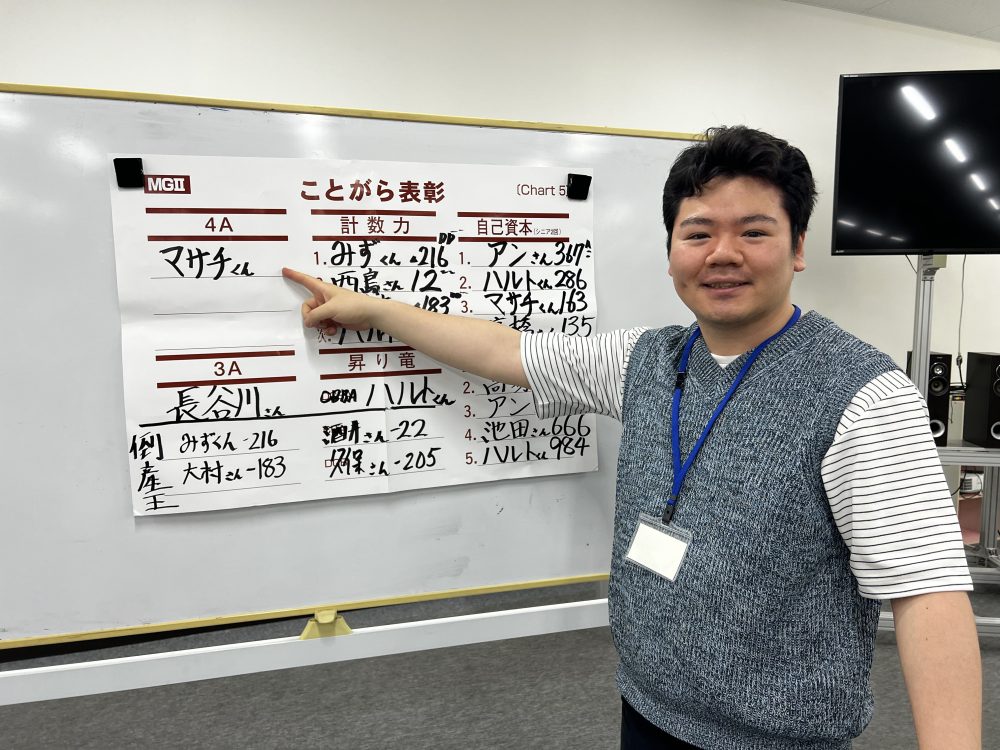 MGII
ことがら表彰
(Chart 5)
4A
マサチくん
計数力
1. みずくん -216
西島さん 12
183
ハルト
自己資本(シニア2回)
1. アンさん 367
2. ハルトくん 286
3. マサチくん 163
135
3A
長谷川さん
昇り竜
ハルトくん
酒井さん -22
久保さん -205
2.
3. アン
4. 池田さん 666
5. ハルトくん 984
倒産王
みずくん -216
大村さん -183